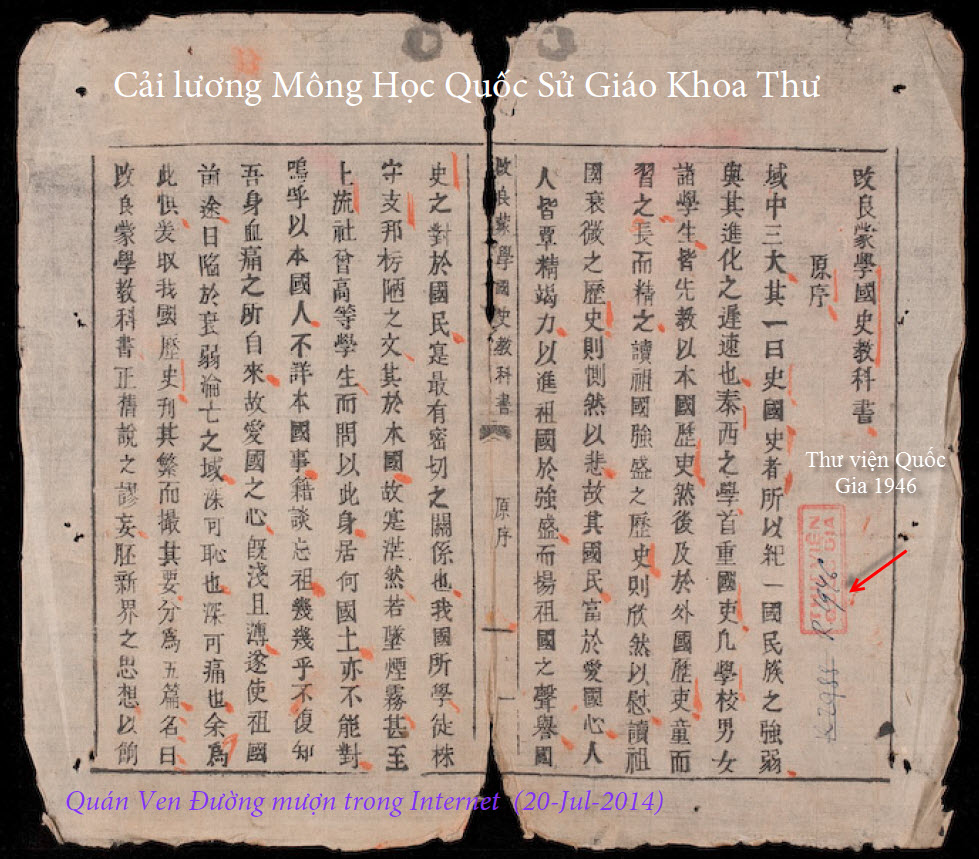 Cải lương Mông Học Quốc Sử Giáo Khoa Thư
改良蒙學國史教科書
原序
域中三大其一曰史國史者所以紀一國民族之強弱
與其進化之遲速也泰西之學首重國史凡學校男女
諸學生皆先教以本國歷史然後及於外國歷史童而
習之長而精之讀祖國強盛之歷史則欣然以慰讀祖
國衰微之歷史則惻然以悲故其國民富於愛國心人
人皆覃精竭力以進祖國於強盛而揚祖國之聲譽國
改良蒙學國史教科書
原序
一
史之對於國民寔最有密切之關係也我國所學徒株
守支那朽陋之文其於本國故寔茫然若墜煙霧甚至
上流社會高等學生而問以此身居何國土亦不能對
嗚呼以本國人不詳本國事籍談忘祖幾幾乎不復知
吾身血痛之所自來故愛國之心既淺且薄遂使祖國
前途日陷於衰弱淪亡之域洙可恥也深可痛也余為
此惧爰取我國歷史刊其繁而撮其要分為五篇名曰
改良蒙學教科書正舊說之謬妄胚新界之思想以餉
Thư viện Quốc
Gia 1946
THƯ VIỆN
QUỐC GIA
Quán Ven Đường mượn trong Internet (20-Jul-2014)